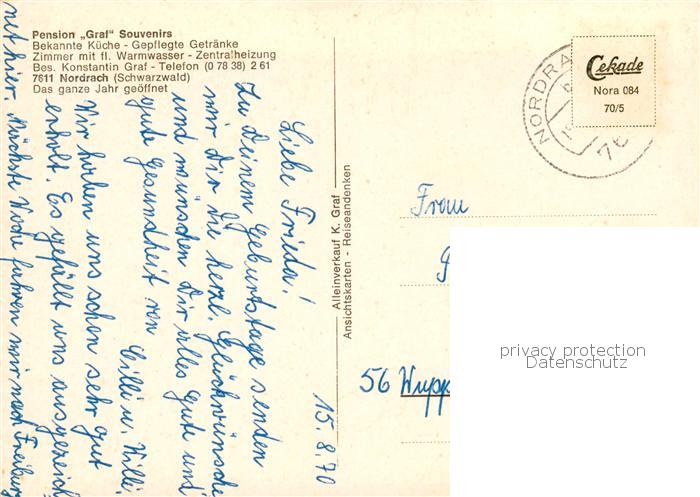 Pension „Graf" Souvenirs
Bekannte Küche - Gepflegte Getränke
Zimmer mit fl. Warmwasser - Zentralheizung
Bes. Konstantin Graf - Telefon (0 78 38) 2 61
7611 Nordrach (Schwarzwald)
Das ganze Jahr geöffnet
15.8.70
Liebe Frieda!
Zu Deinem Geburtstage senden
wir Dir die herzl. Glückwünsche
und wünschen Dir alles Gute und
gute Gesundheit von
Cilli u. Willi.
Wir haben uns schon sehr gut
erholt. Es gefällt uns ausgezeich
net hier. Nächste Woche fahren wir nach Freiburg
Alleinverkauf K. Graf
Ansichtskarten - Reiseandenken
NORDRA
76
Cekade
Nora 084
70/5
Frau
56 Wupp
privacy protection
Datenschutz